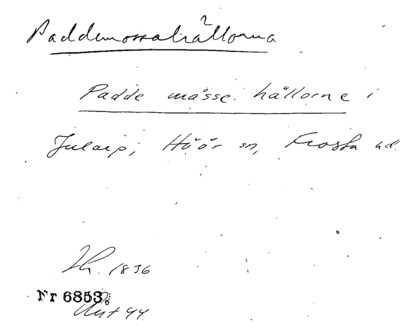 Paddemossahällorna
Padde mässe hällorne i
Jularp, Höör sn, Frosta hd.
Lh. 1836
Nr 6853
Ant 44